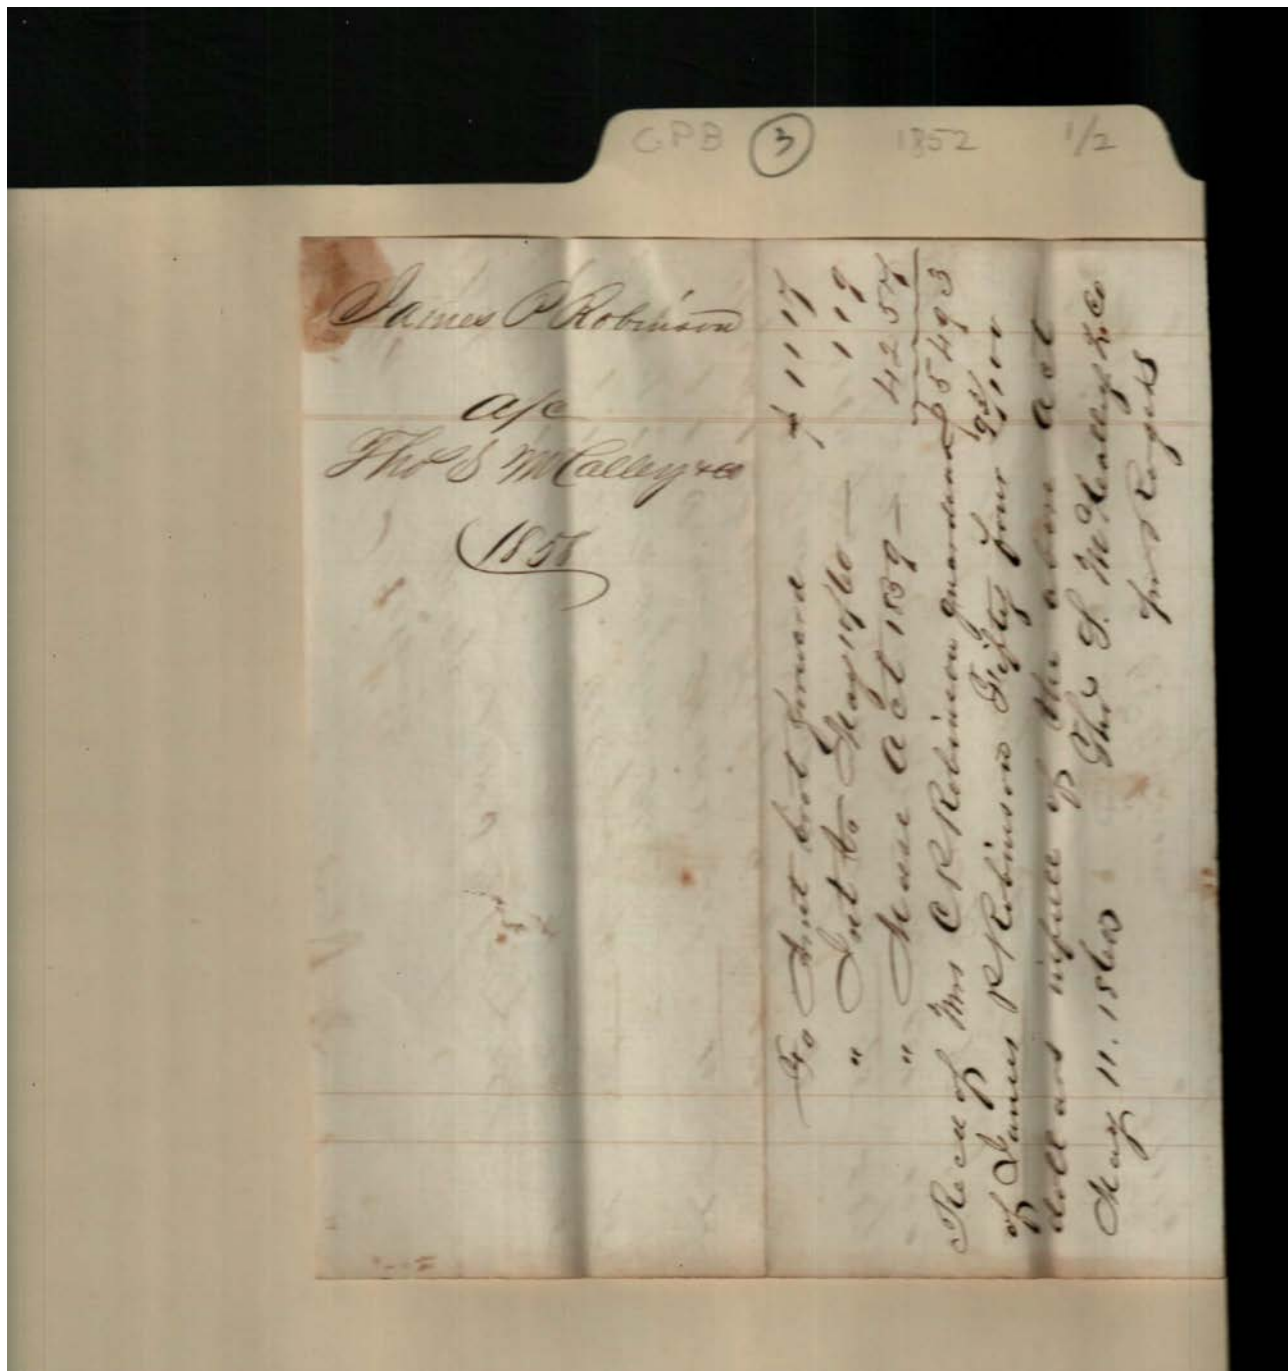 GPB 3 1852 1/2
James P Robinson
a/c
Thos S McCalley & co
1858
To Amt brot forward $ 11 17
" Int to May 10/60 — 1 19
" Mase Act 1859 — 42 57
Recd of Mrs C R Robinson guardian $ 54 93
of James P Robinson Fifty four 93/100
dollars in full of the above act
May 11. 1860 Thos S. McCalley & Co
pr Rogers